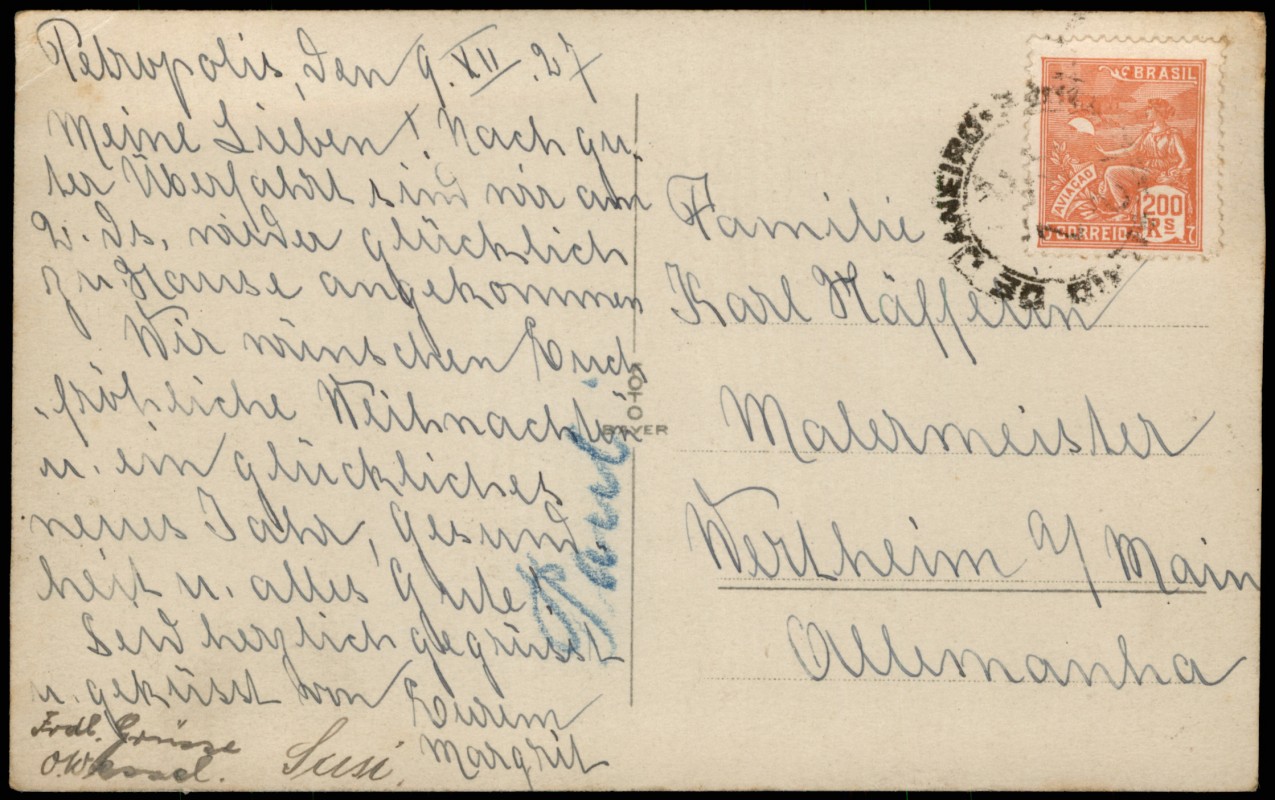 Petropolis, den 9. XII. 27
Meine Lieben! Nach gu-
ter Überfahrt sind wir am
2. ds. wieder glücklich
zu Hause angekommen
Wir wünschen Euch
fröhliche Weihnachten
u. ein glückliches
neues Jahr, Gesund
heit u. alles Gute.
Seid herzlich gegrüsst
u. geküsst von Eurem
Margrit
Frdl. Grüsse
Susi.
FOTO
BAYER
BRASIL
AVIAÇÃO
200
RS
CORREIO
RIO DE JANEIRO
Familie
Karl
Malermeister
Wertheim a/ Main
Allemanha